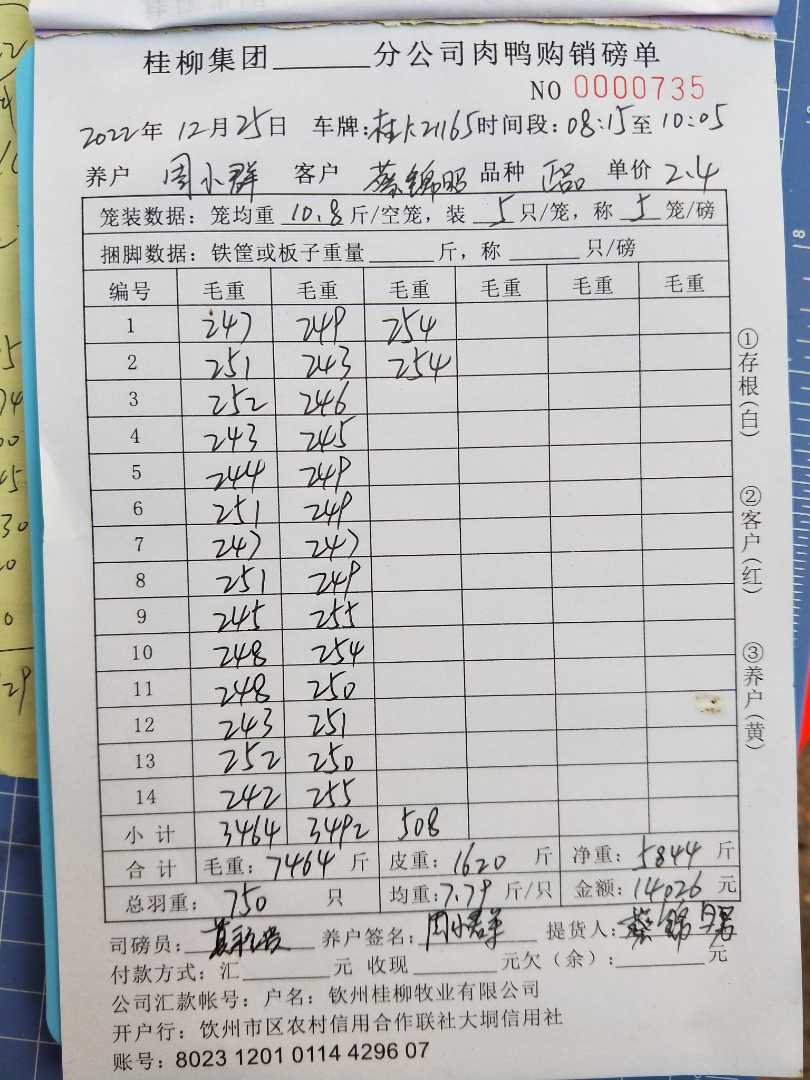 桂柳集团______分公司肉鸭购销磅单
NO 0000735
2022年 12月25日 车牌:桂K21165时间段:08:15至10:05
养户 周小群 客户 蔡锦昭 品种 正品 单价 2.4
笼装数据: 笼均重 10.8斤/空笼, 装 5只/笼, 称 5笼/磅
捆脚数据: 铁筐或板子重量______斤, 称______只/磅
编号 毛重 毛重 毛重 毛重 毛重 毛重
1 247 249 254
2 251 243 254
3 252 246
4 243 245
5 244 249
6 251 249
7 247 247
8 251 249
9 245 255
10 248 254
11 248 250
12 243 251
13 252 250
14 242 255
小计 3464 3492 508
合计 毛重: 7464斤 皮重: 1620斤 净重: 5844斤
总羽重: 750只 均重: 7.79斤/只 金额: 14026元
司磅员: 养户签名: 周小群 提货人: 蔡锦昭
付款方式: 汇______元 收现______元欠(余):______元
公司汇款帐号: 户名: 钦州桂柳牧业有限公司
开户行: 钦州市区农村信用合作联社大垌信用社
账号: 8023 1201 0114 4296 07
①存根(白)
②客户(红)
③养户(黄)